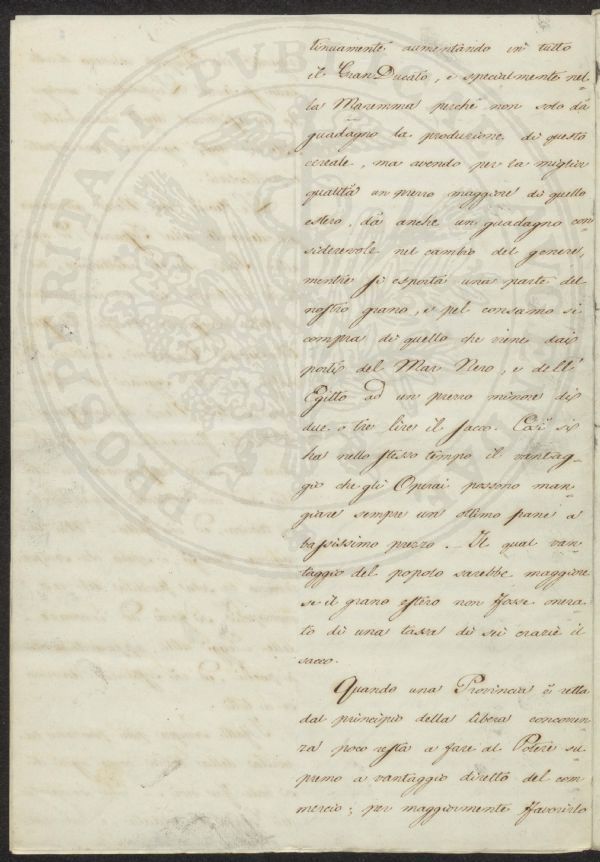 tinuamente aumentando in tutto
il Gran Ducato, e specialmente nel=
la Maremma perchè non solo dà
guadagno la produzione di questo
cereale, ma avendo per la miglior
qualità un prezzo maggiore di quello
estero, dà anche un guadagno con=
siderevole nel cambio del genere,
mentre si esporta una parte del
nostro grano, e pel consumo si
compra di quello che viene dai
porti del Mar Nero, e dell'
Egitto ad un prezzo minore di
due o tre lire il sacco. Così si
ha nello stesso tempo il vantag=
gio che gli Operai possono man=
giare sempre un ottimo pane a
bassissimo prezzo. – Il qual van=
taggio del popolo sarebbe maggiore
se il grano estero non fosse onera=
to di una tassa di sei crazie il
sacco.
Quando una Provincia è retta
dal principio della libera concorren=
za poco resta a fare al Potere su=
premo a vantaggio diretto del com=
mercio; per maggiormente favorirlo
PROSPERITATI PUBLICAE